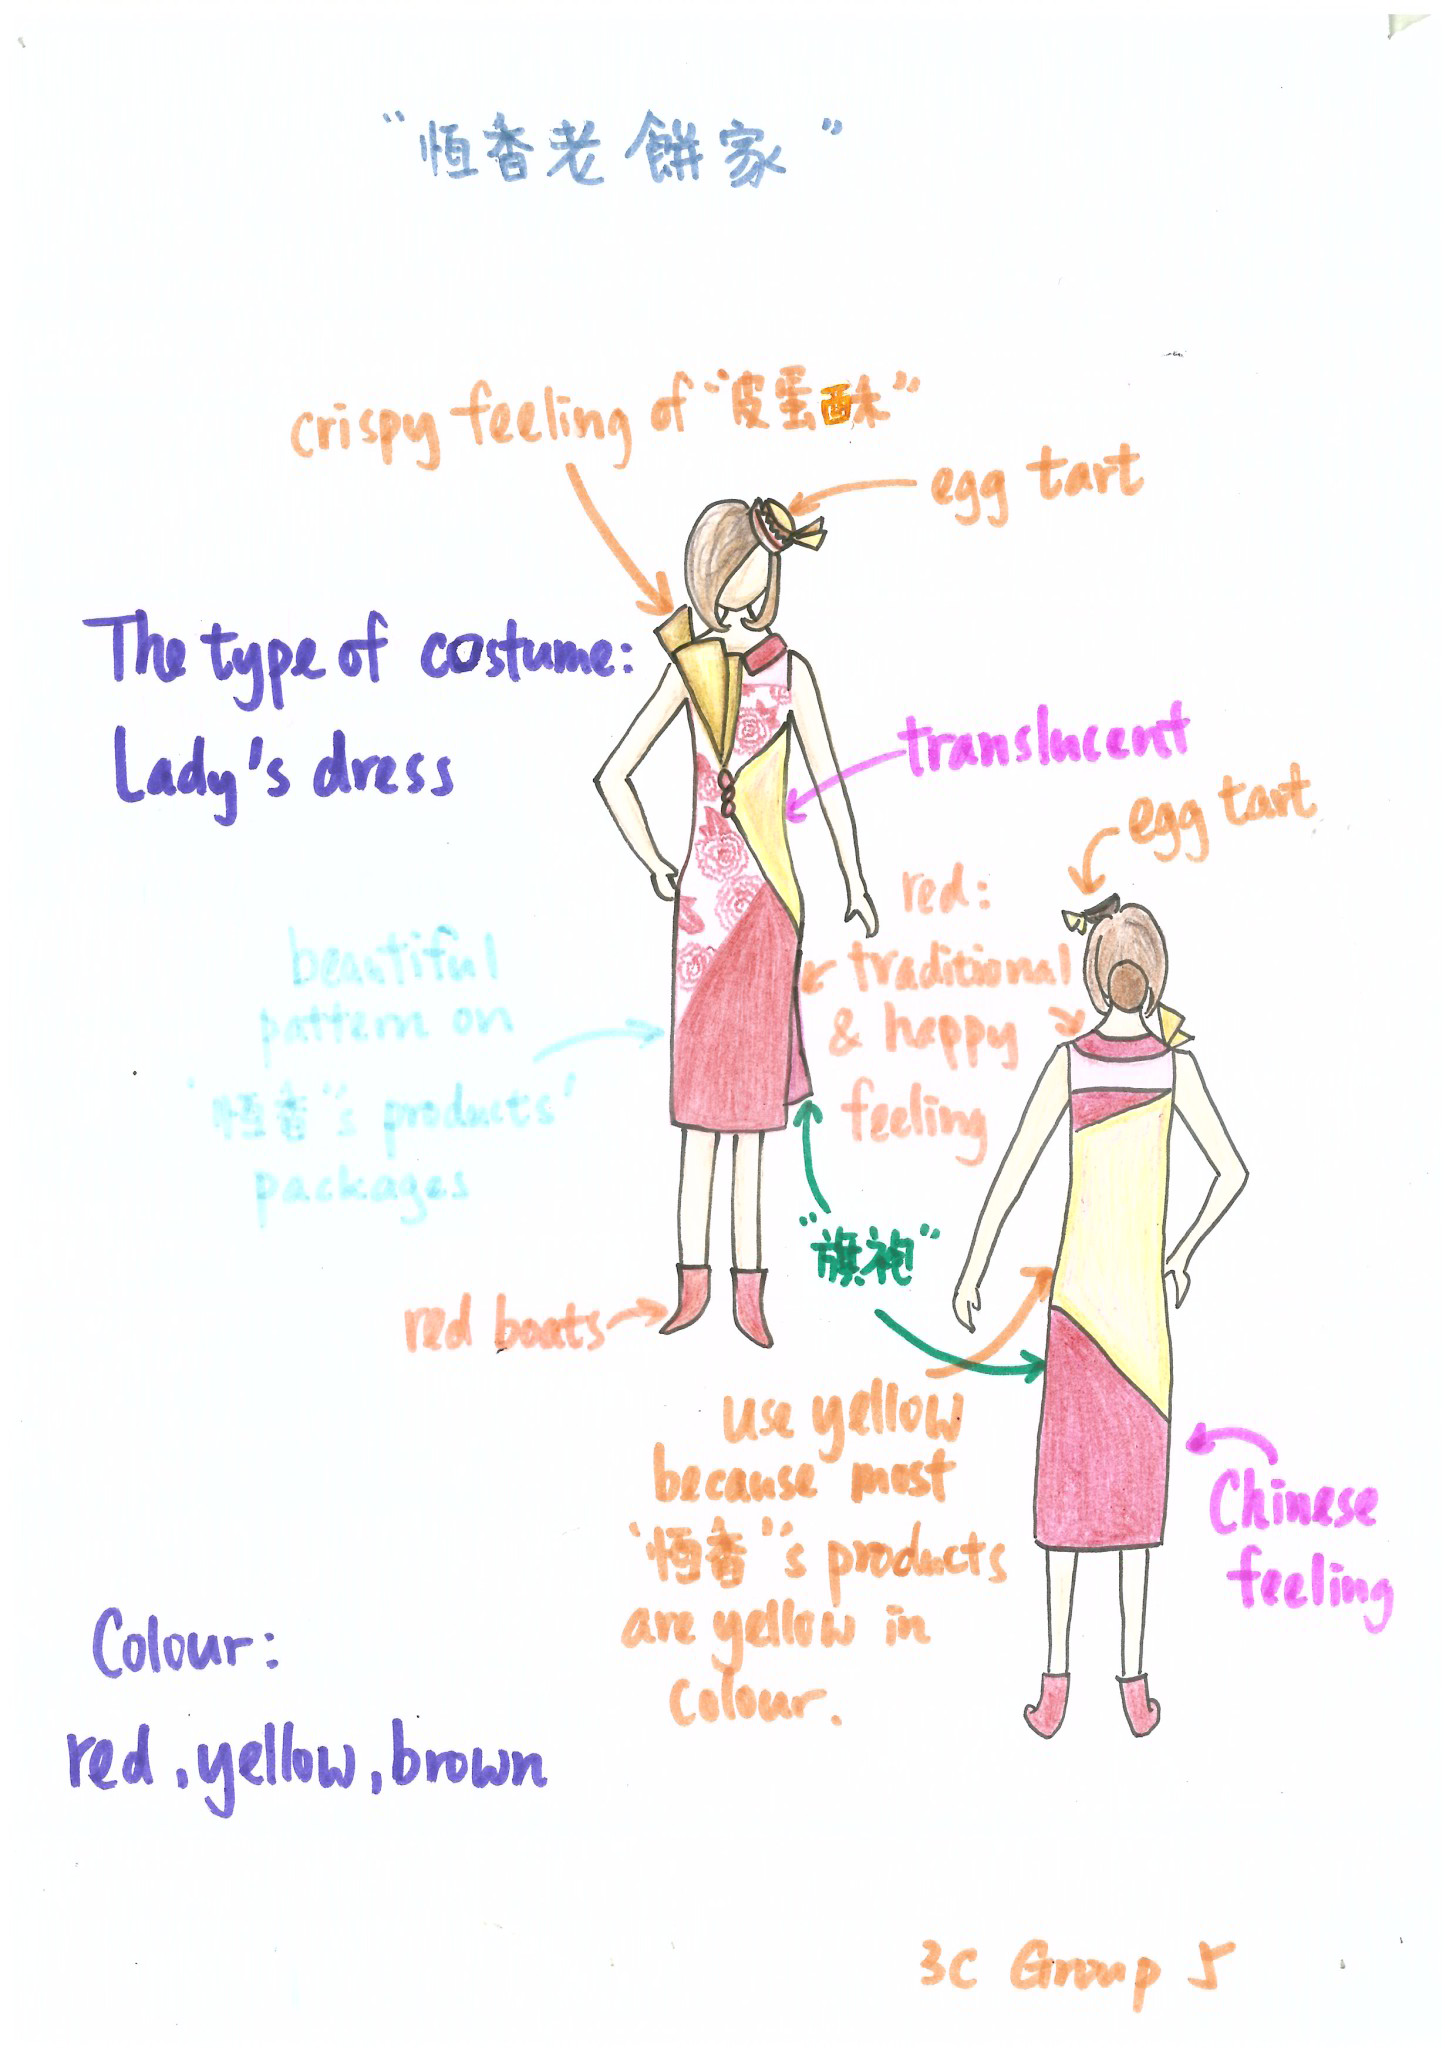 “恆香老餅家”
crispy feeling of “皮蛋酥”
egg tart
The type of costume:
Lady's dress
translucent
egg tart
red:
traditional
& happy
feeling
beautiful
pattern on
‘恆香”s products’
packages
“旗袍”
red boots
use yellow
because most
‘恆香”s products
are yellow in
colour.
Chinese
feeling
Colour:
red, yellow, brown
3C Group 5